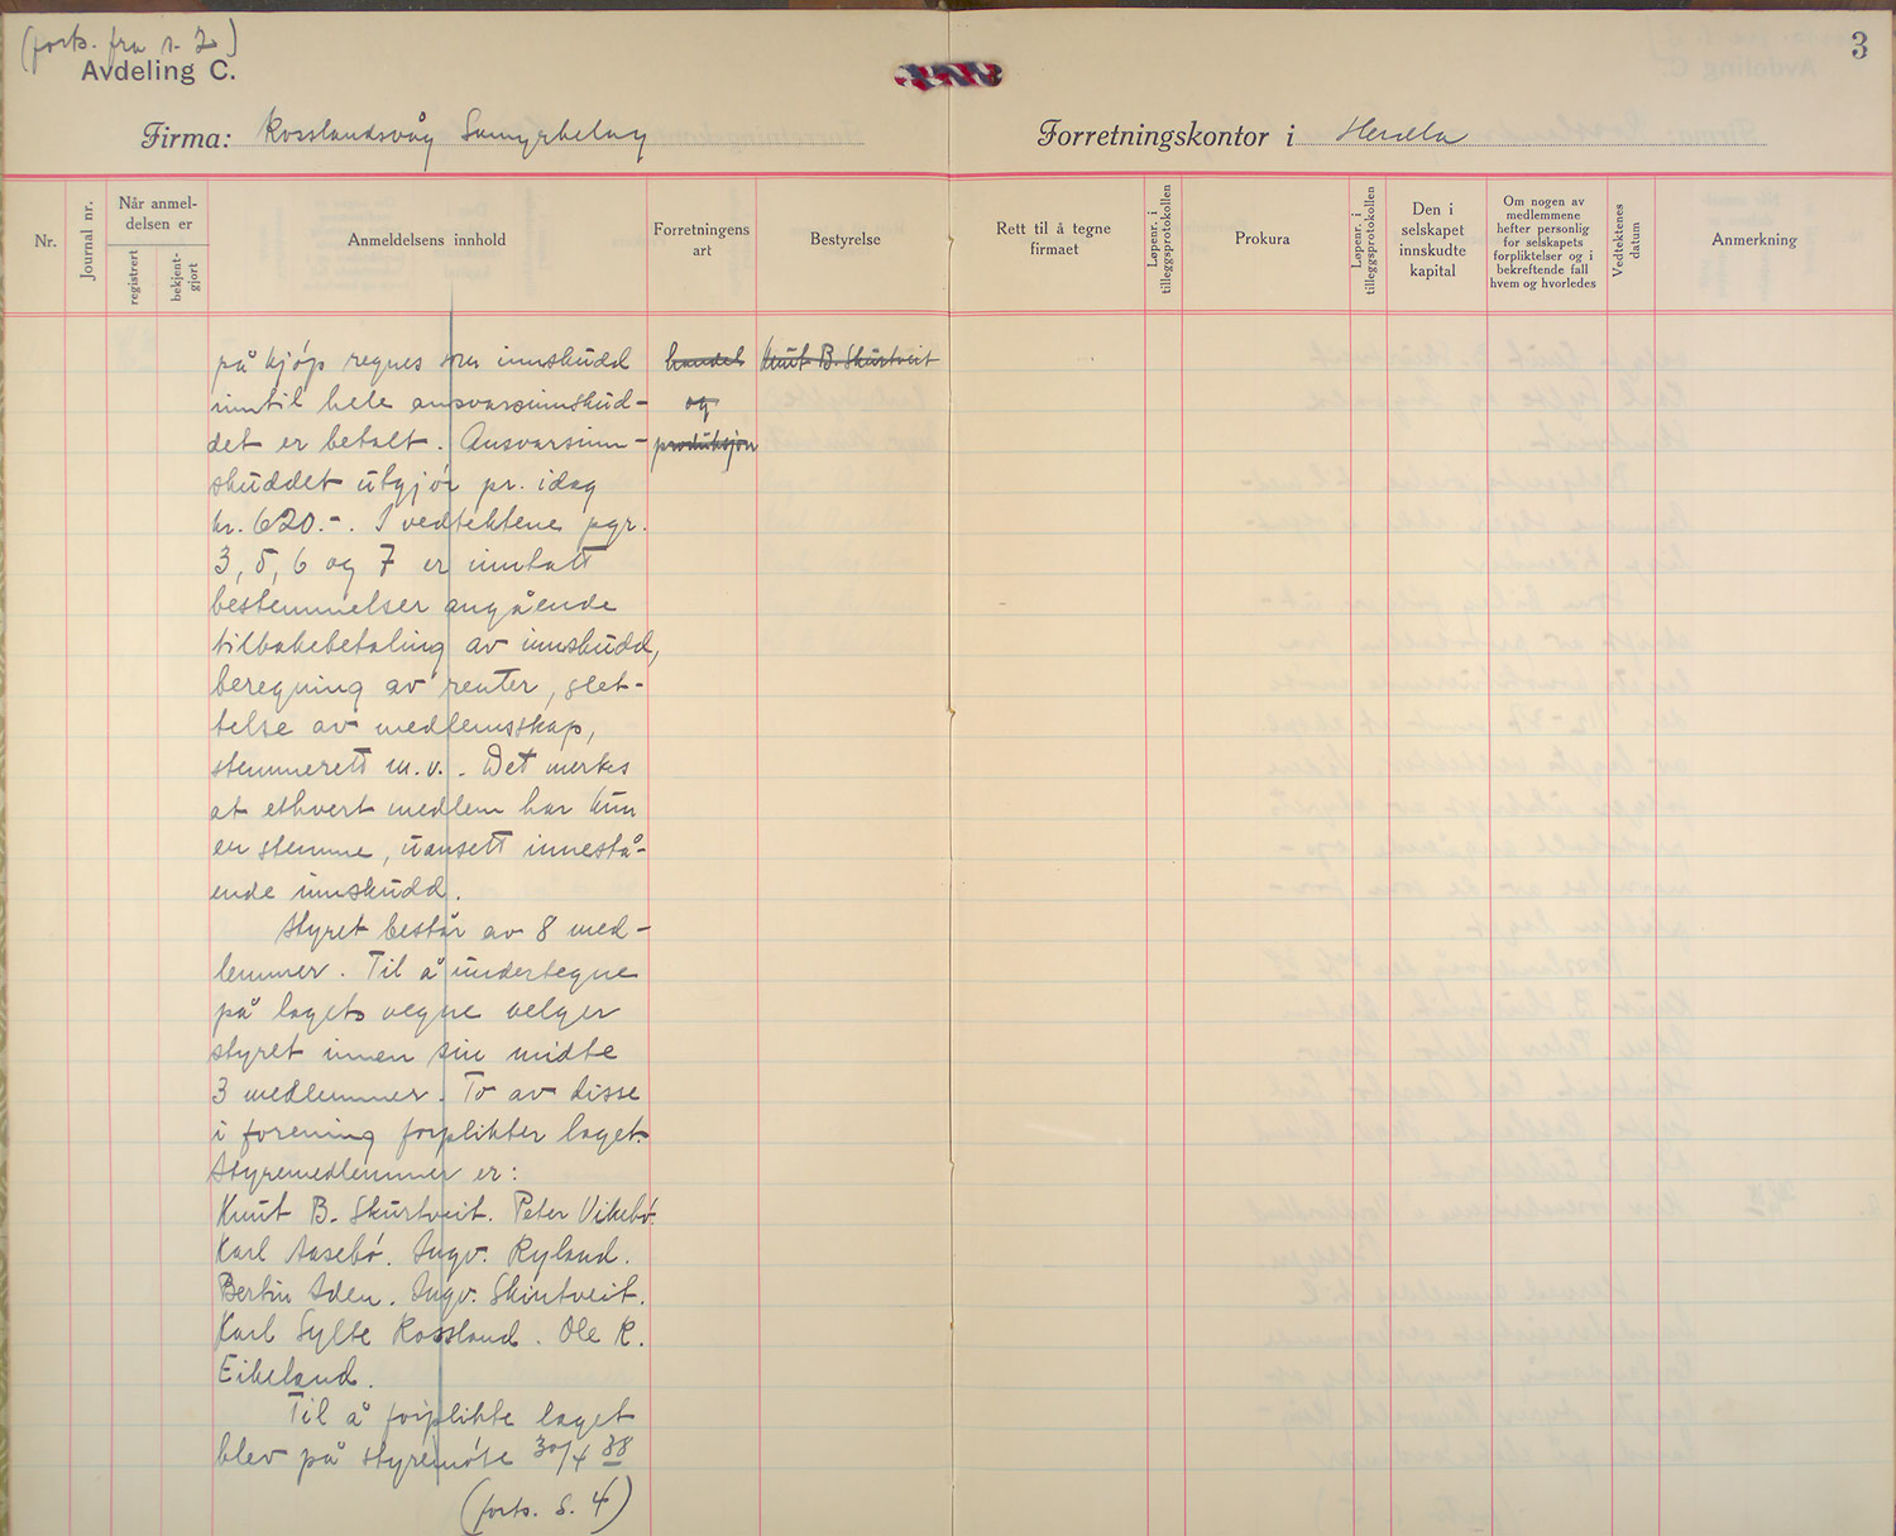 (forts. fra s. 2)
Avdeling C.
3
Firma: Rosslandsvåg Samyrkelag
Forretningskontor i Herdla
Nr.
Journal nr.
Når anmel-
delsen er
registrert
bekjent-
gjort
Anmeldelsens innhold
Forretningens
art
Bestyrelse
Rett til å tegne
firmaet
Løpenr. i
tilleggsprotokollen
Prokura
Løpenr. i
tilleggsprotokollen
Den i
selskapet
innskudte
kapital
Om nogen av
medlemmene
hefter personlig
for selskapets
forpliktelser og i
bekreftende fall
hvem og hvorledes
Vedtektenes
datum
Anmerkning
på kjøp regnes som innskudd
inntil hele ansvarsinnskud-
det er betalt. Ansvarsinn-
skuddet utgjør pr. idag
kr. 620.-. I vedtektene pgr.
3, 5, 6 og 7 er inntatt
bestemmelser angående
tilbakebetaling av innskudd,
beregning av renter, slet-
telse av medlemsskap,
stemmerett m.v.. Det merkes
at ethvert medlem har kun
en stemme, uansett innestå-
ende innskudd.
Styret består av 8 med-
lemmer. Til å undertegne
på lagets vegne velger
styret innen sin midte
3 medlemmer. To av disse
i forening forplikter laget.
Styremedlemmer er:
Knut B. Skurtveit. Peter Vikebø.
Karl Aasebø. Ingv. Ryland.
Bertin Aden. Ingv. Skurtveit.
Karl Sylte Rossland. Ole R.
Eikeland.
Til å forplikte laget
blev på styremøte 30/4 38
(forts. s. 4)
handel
og
produksjon
Knut B. Skurtveit